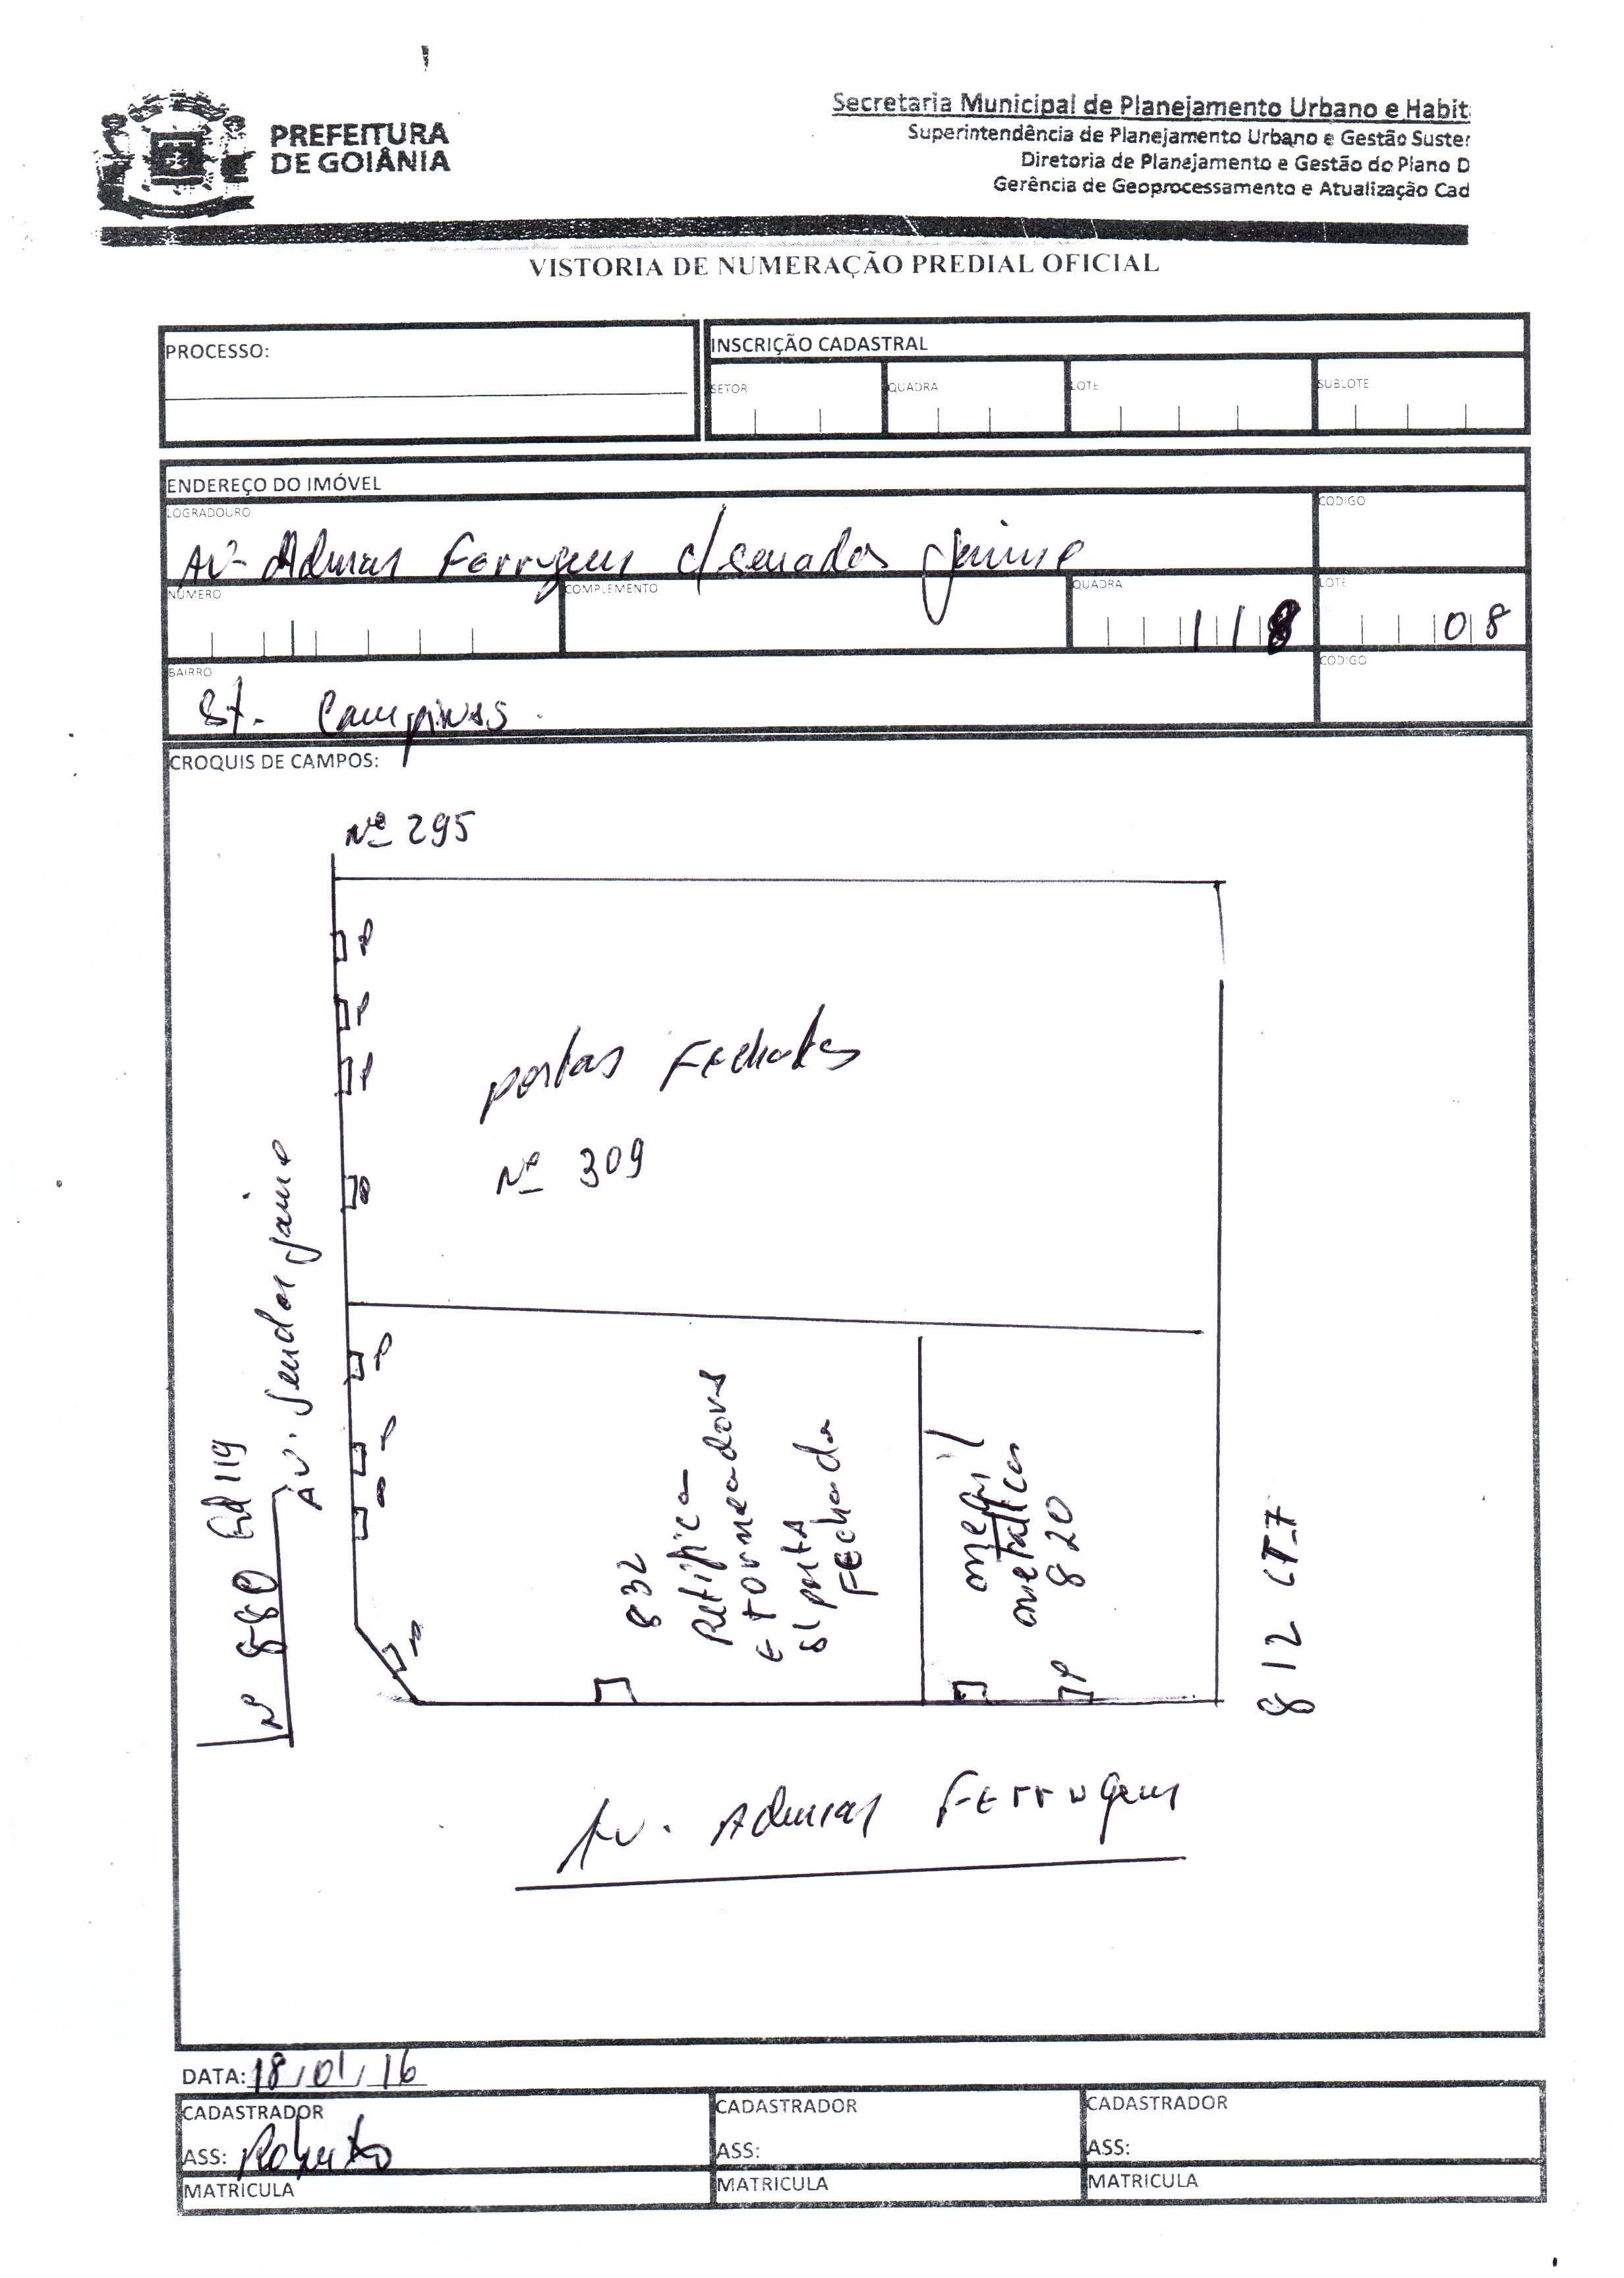 PREFEITURA
DE GOIÂNIA
Secretaria Municipal de Planejamento Urbano e Habit
Superintendência de Planejamento Urbano e Gestão Suster
Diretoria de Planejamento e Gestão do Plano D
Gerência de Geoprocessamento e Atualização Cad
VISTORIA DE NUMERAÇÃO PREDIAL OFICIAL
PROCESSO:
INSCRIÇÃO CADASTRAL
SETOR QUADRA LOTE SUBLOTE
ENDEREÇO DO IMÓVEL
LOGRADOURO CODIGO
AV- Admar Ferrugem c/ senador Jaime
NÚMERO COMPLEMENTO QUADRA LOTE
118 08
BAIRRO CODIGO
St. Campinas
CROQUIS DE CAMPOS:
Nº 295
P
P
P
P
portas Fechadas
Nº 309
AV. Senador Jaime
Qd 119
Nº 880
P
P
P
P
832
Retifica
e Torneadora
s/ porta
Fechada
metálica
820
P
812 LT-7
Av. Admar Ferrugem
DATA: 18/01/16
CADASTRADOR CADASTRADOR CADASTRADOR
ASS: Roberto ASS: ASS:
MATRICULA MATRICULA MATRICULA